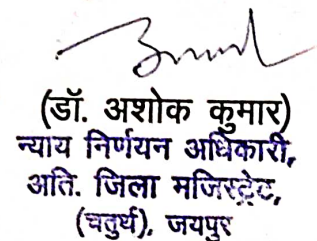 (डॉ. अशोक कुमार)
न्याय निर्णयन अधिकारी,
अति. जिला मजिस्ट्रेट,
(चतुर्थ), जयपुर